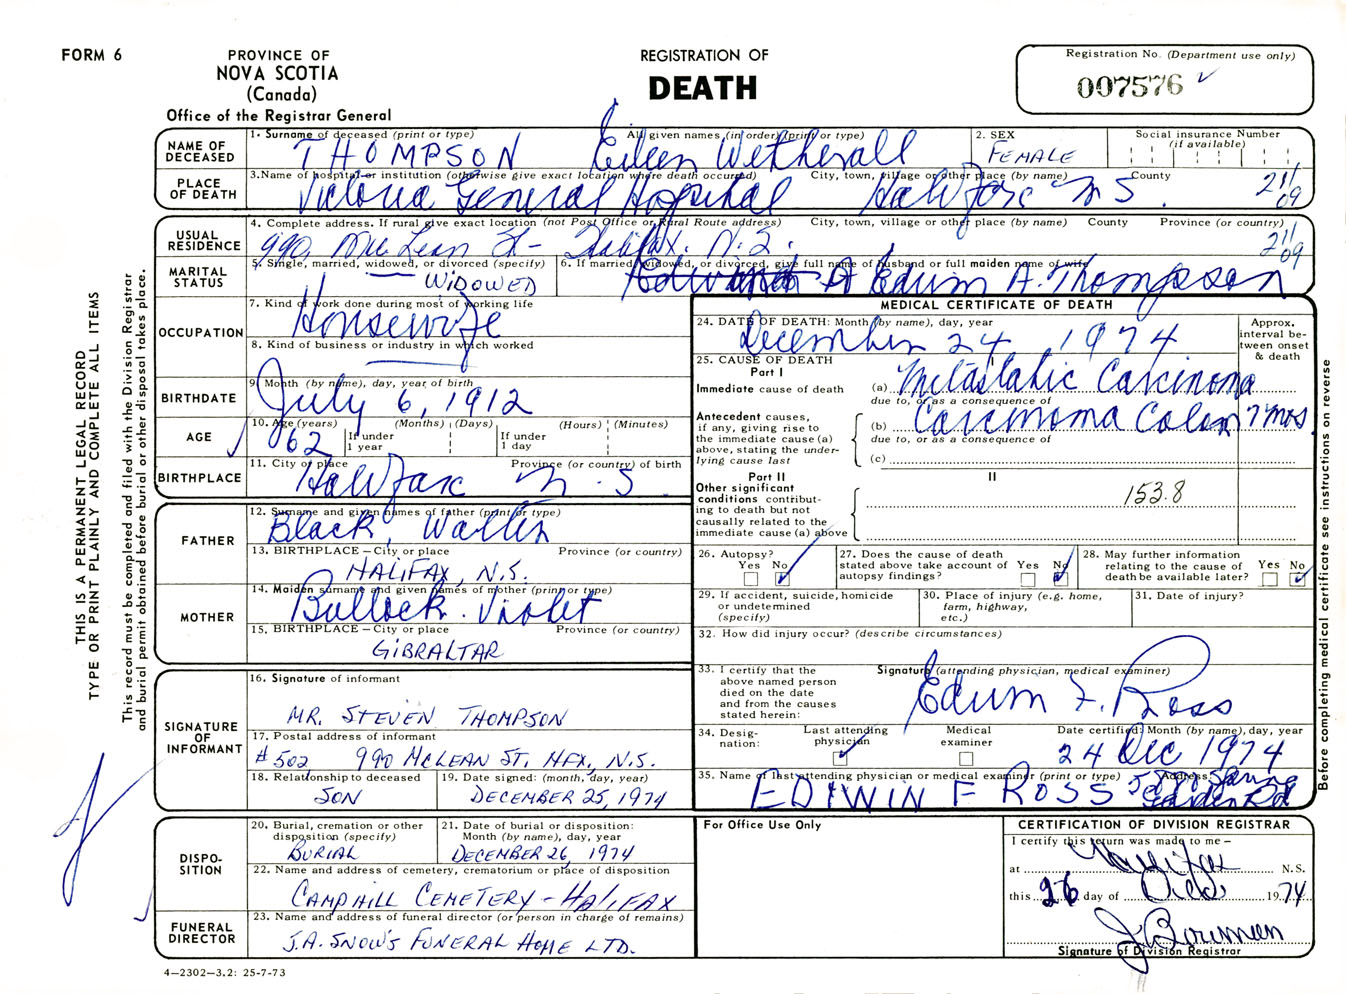 FORM 6
PROVINCE OF
NOVA SCOTIA
(Canada)
Office of the Registrar General
REGISTRATION OF
DEATH
Registration No. (Department use only)
007576
THIS IS A PERMANENT LEGAL RECORD
TYPE OR PRINT PLAINLY AND COMPLETE ALL ITEMS
This record must be completed and filed with the Division Registrar
and burial permit obtained before burial or other disposal takes place.
NAME OF DECEASED
1. Surname of deceased (print or type) All given names (in order) (print or type)
THOMPSON Eileen Wetherall
2. SEX
FEMALE
Social insurance Number
(if available)
PLACE OF DEATH
3. Name of hospital or institution (otherwise give exact location where death occurred) City, town, village or other place (by name) County
Victoria General Hospital Halifax N.S. 211 09
USUAL RESIDENCE
4. Complete address. If rural give exact location (not Post Office or Rural Route address) City, town, village or other place (by name) County Province (or country)
990 McLean St- Halifax. N.S. 211 09
MARITAL STATUS
5. Single, married, widowed, or divorced (specify)
WIDOWED
6. If married, widowed, or divorced, give full name of husband or full maiden name of wife
A Edwin A. Thompson
OCCUPATION
7. Kind of work done during most of working life
Housewife
8. Kind of business or industry in which worked
BIRTHDATE
9. Month (by name), day, year of birth
July 6, 1912
AGE
10. Age (years) (Months) (Days) (Hours) (Minutes)
62 If under 1 year If under 1 day
BIRTHPLACE
11. City or place Province (or country) of birth
Halifax N.S.
FATHER
12. Surname and given names of father (print or type)
Black, Walter
13. BIRTHPLACE – City or place Province (or country)
HALIFAX, N.S.
MOTHER
14. Maiden surname and given names of mother (print or type)
Bullock. Violet
15. BIRTHPLACE – City or place Province (or country)
GIBRALTAR
SIGNATURE OF INFORMANT
16. Signature of informant
MR. STEVEN THOMPSON
17. Postal address of informant
#502 990 McLEAN ST, HFX, N.S.
18. Relationship to deceased
SON
19. Date signed: (month, day, year)
DECEMBER 25, 1974
DISPO-
SITION
20. Burial, cremation or other
disposition (specify)
BURIAL
21. Date of burial or disposition:
Month (by name), day, year
DECEMBER 26, 1974
22. Name and address of cemetery, crematorium or place of disposition
CAMPHILL CEMETERY - HALIFAX
FUNERAL DIRECTOR
23. Name and address of funeral director (or person in charge of remains)
J.A. SNOW'S FUNERAL HOME LTD.
4–2302–3.2: 25-7-73
MEDICAL CERTIFICATE OF DEATH
24. DATE OF DEATH: Month (by name), day, year
December 24, 1974
Approx. interval be-
tween onset
& death
25. CAUSE OF DEATH
Part I
Immediate cause of death
(a) Metastatic Carcinoma
due to, or as a consequence of
Antecedent causes,
if any, giving rise to
the immediate cause (a)
above, stating the under-
lying cause last
(b) Carcinoma Colon 7 mos.
due to, or as a consequence of
(c)
Part II
II
Other significant
conditions contribut-
ing to death but not
causally related to the
immediate cause (a) above
153.8
26. Autopsy?
Yes No
27. Does the cause of death
stated above take account of
autopsy findings?
Yes No
28. May further information
relating to the cause of
death be available later?
Yes No
29. If accident, suicide, homicide
or undetermined
(specify)
30. Place of injury (e.g. home,
farm, highway,
etc.)
31. Date of injury?
32. How did injury occur? (describe circumstances)
33. I certify that the
above named person
died on the date
and from the causes
stated herein:
Signature (attending physician, medical examiner)
Edwin F. Ross
34. Desig-
nation:
Last attending
physician
Medical
examiner
Date certified: Month (by name), day, year
24 Dec 1974
35. Name of last attending physician or medical examiner (print or type) Address
EDIWIN F ROSS Spring
Garden Rd
Before completing medical certificate see instructions on reverse
For Office Use Only
CERTIFICATION OF DIVISION REGISTRAR
I certify this return was made to me –
at Halifax N.S.
this 26 day of Dec 1974
J. Bowman
Signature of Division Registrar